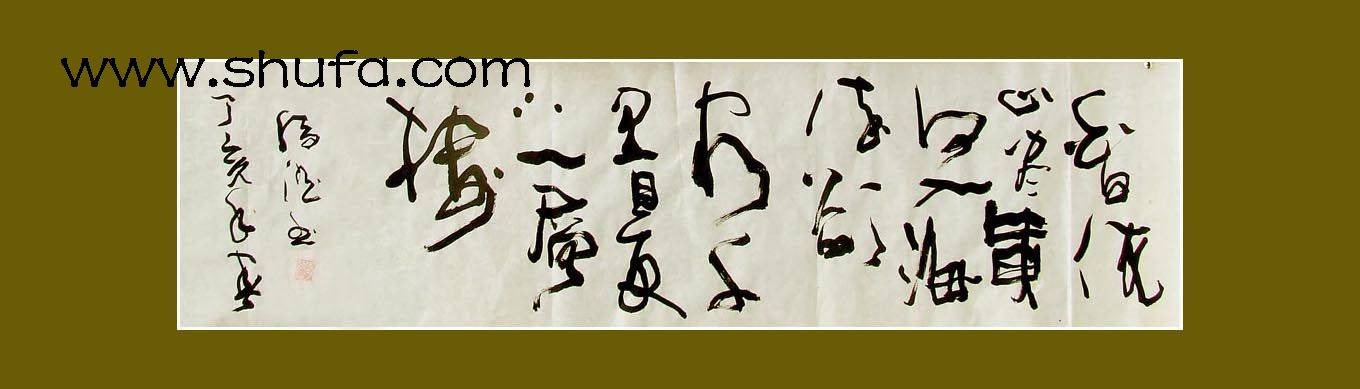 www.shufa.com
白日依
山尽黄
河入海
流欲
窮千
里目更
上一層
樓
书
丁亥年春